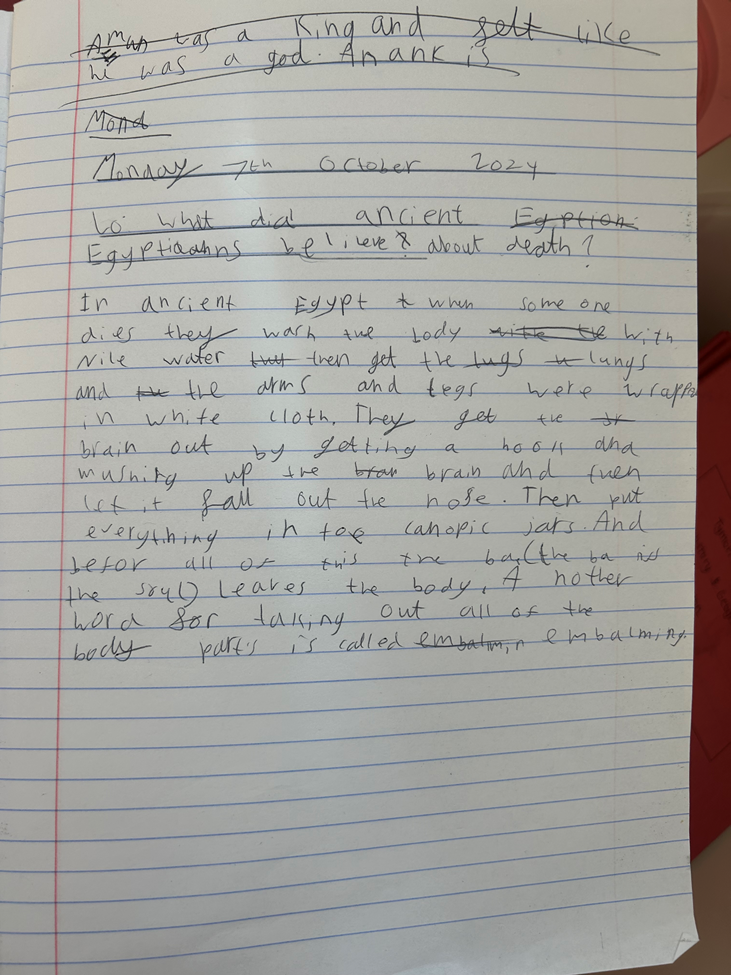 Aman was a King and felt like
he was a god. An ank is
Mond
Monday 7th October 2024
Lo: what did ancient Egption
Egyptiaahns belileve about death?
In ancient Egypt when some one
dies they wash the body with the with
Nile water but then get the lugs lungs
and the the arms and legs were wrappe
in white cloth. They get the
brain out by getting a hook and
mushing up the bran brain and then
let it fall out the nose. Then put
everything in toe canopic jars. And
befor all of this the ba (the ba is
the soul) leaves the body. A nother
word for taking out all of the
body parts is called embalmin embalming.